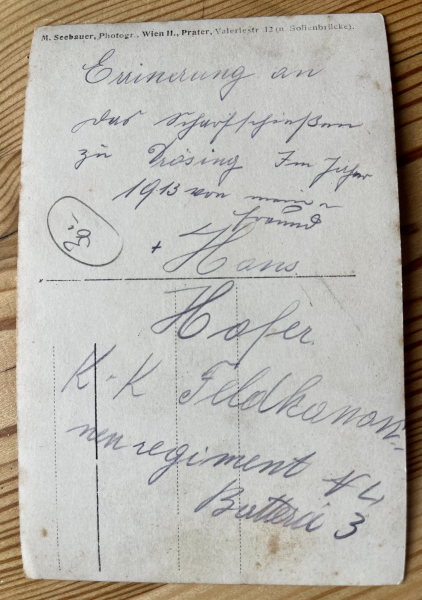 M. Seebauer, Photogr., Wien II., Prater, Valeriestr. 12 (n. Sofienbrücke).
Erinerung an
das Scharfschießen
zu Drösing Im Jahr
1913 von meinen
freund
+ Hans
Hofer
K. K Feldkanon-
nen regiment N 4
Batterie 3